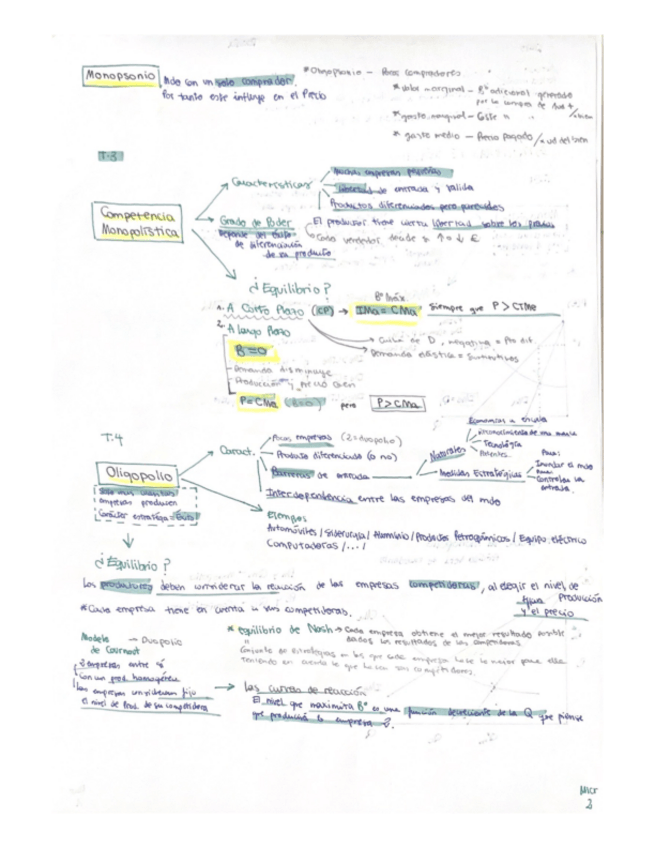 Monopsonio
Mdo con un solo comprador.
Por tanto este influye en el Precio
* Oligopsonio - Pocos compradores
* valor marginal - Bº adicional generado
por la compra de 1 ud +
* gasto marginal - Coste
* gasto medio - Precio pagado / ud del bien
T.3
Competencia
Monopolística
Características
Muchas empresas pequeñas
Libertad de entrada y salida
Productos diferenciados pero parecidos
Grado de Poder
Depende del éxito
de diferenciación
de su producto
El productor tiene cierta libertad sobre los precios
Cada vendedor decide si ↑ o ↓ €
¿Equilibrio?
1. A Corto Plazo (CP) → IMa = CMa siempre que P > CTMe
Bº máx.
Curva de D, negativa = Pro dif.
Demanda elástica = Sustitutivos
2. A largo Plazo
B = 0
- Demanda disminuye
- Producción y precio caen
P = CMe (B=0) pero P > CMa
T.4
Oligopolio
Solo unas cuantas
empresas producen
Carácter estratega = Éxito
Caract.
Pocas empresas (2 = duopolio)
Producto diferenciado (o no)
Barreras de entrada
Naturales
Economías a escala
Reconocimiento de una marca
Tecnología
Patentes
Medidas Estratégicas
Para:
Inundar el mdo
Para:
Controlar la
entrada
Interdependencia entre las empresas del mdo
Ejemplos
Automóviles / Siderurgia / Aluminio / Productos Petroquímicos / Equipo eléctrico
Computadoras / ... /
¿Equilibrio?
Los productores deben considerar la reacción de las empresas competidoras, al elegir el nivel de
Producción
y el precio
* Cada empresa tiene en cuenta a sus competidoras.
Modelo - Duopolio
de Cournot
2 empresas entre sí
Con un prod. homogéneo
Las empresas consideran fijo
el nivel de Prod. de su competidora
* equilibrio de Nash → Cada empresa obtiene el mejor resultado posible
dados los resultados de las competidoras
Conjunto de estrategias en las que cada empresa hace lo mejor para ella
Teniendo en cuenta lo que hacen sus competidoras.
→ Las curvas de reacción
El nivel que maximiza Bº es una función decreciente de la Q que piense
que producirá la empresa 2.
Micr
2